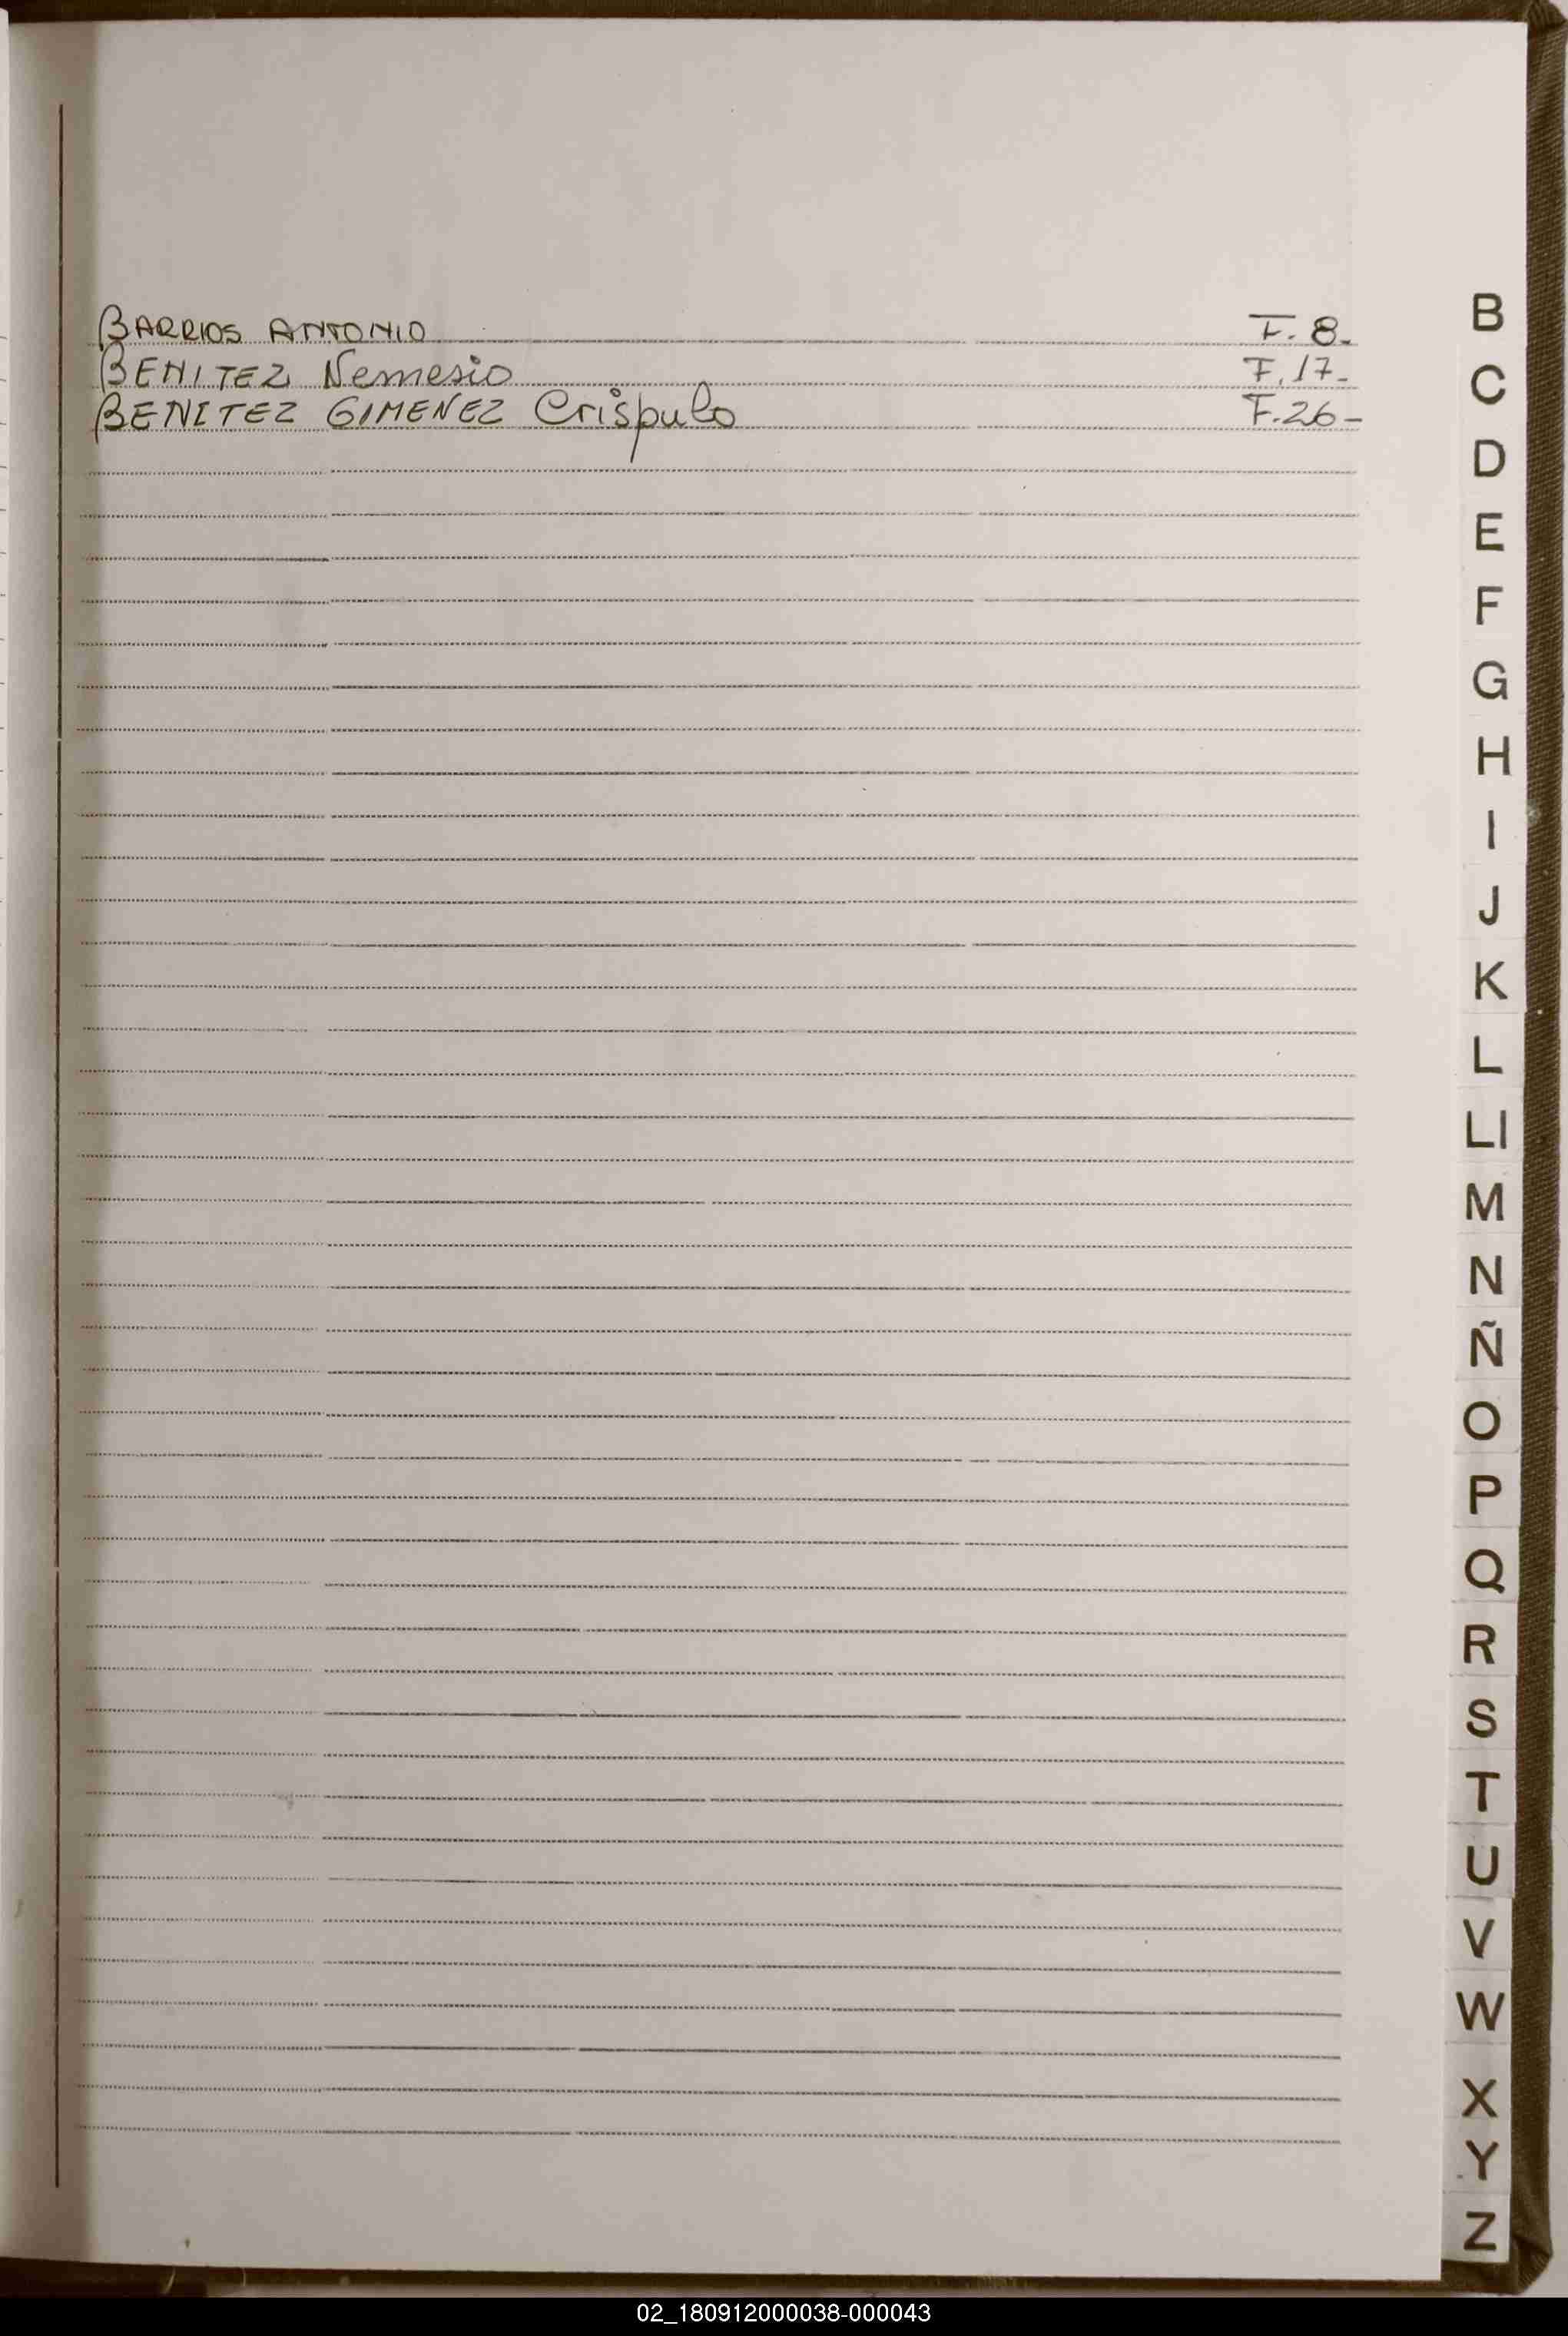 BARRIOS ANTONIO F. 8.
BENITEZ Nemesio F. 17-
BENITEZ GIMENEZ Crispulo F. 26-
B
C
D
E
F
G
H
I
J
K
L
Ll
M
N
Ñ
O
P
Q
R
S
T
U
V
W
X
Y
Z
02_180912000038-000043